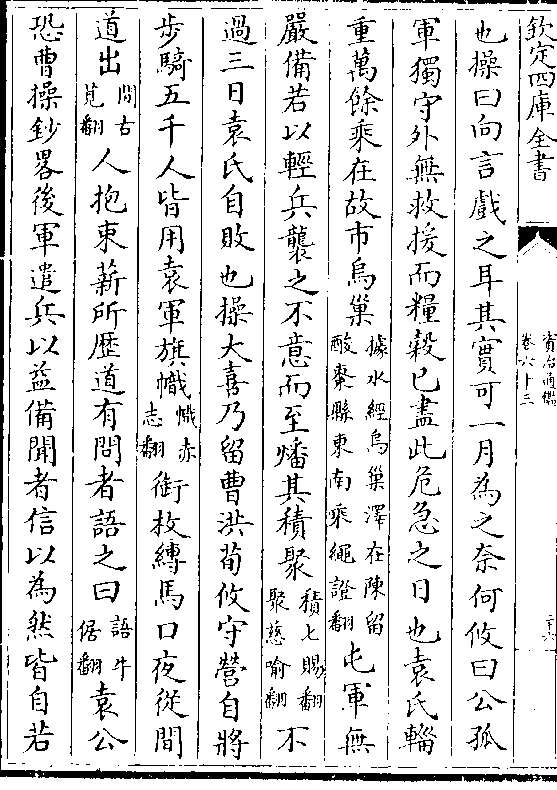 欽定四庫全書
資治通鑑
卷六十三
也操曰向言戲之耳其實可一月為之奈何攸曰公孤
軍獨守外無救援而糧穀已盡此危急之日也袁氏輜
重萬餘乘在故市烏巢據水經烏巢澤在陳留酸棗縣東南乘繩證翻屯軍無
嚴備若以輕兵襲之不意而至燔其積聚積七賜翻聚慈喻翻不
過三日袁氏自敗也操大喜乃留曹洪荀攸守營自將
步騎五千人皆用袁軍旗幟幟赤志翻銜枚縛馬口夜從間
道出間古莧翻人抱束薪所歷道有問者語之曰語牛倨翻袁公
恐曹操鈔畧後軍遣兵以益備聞者信以為然皆自若